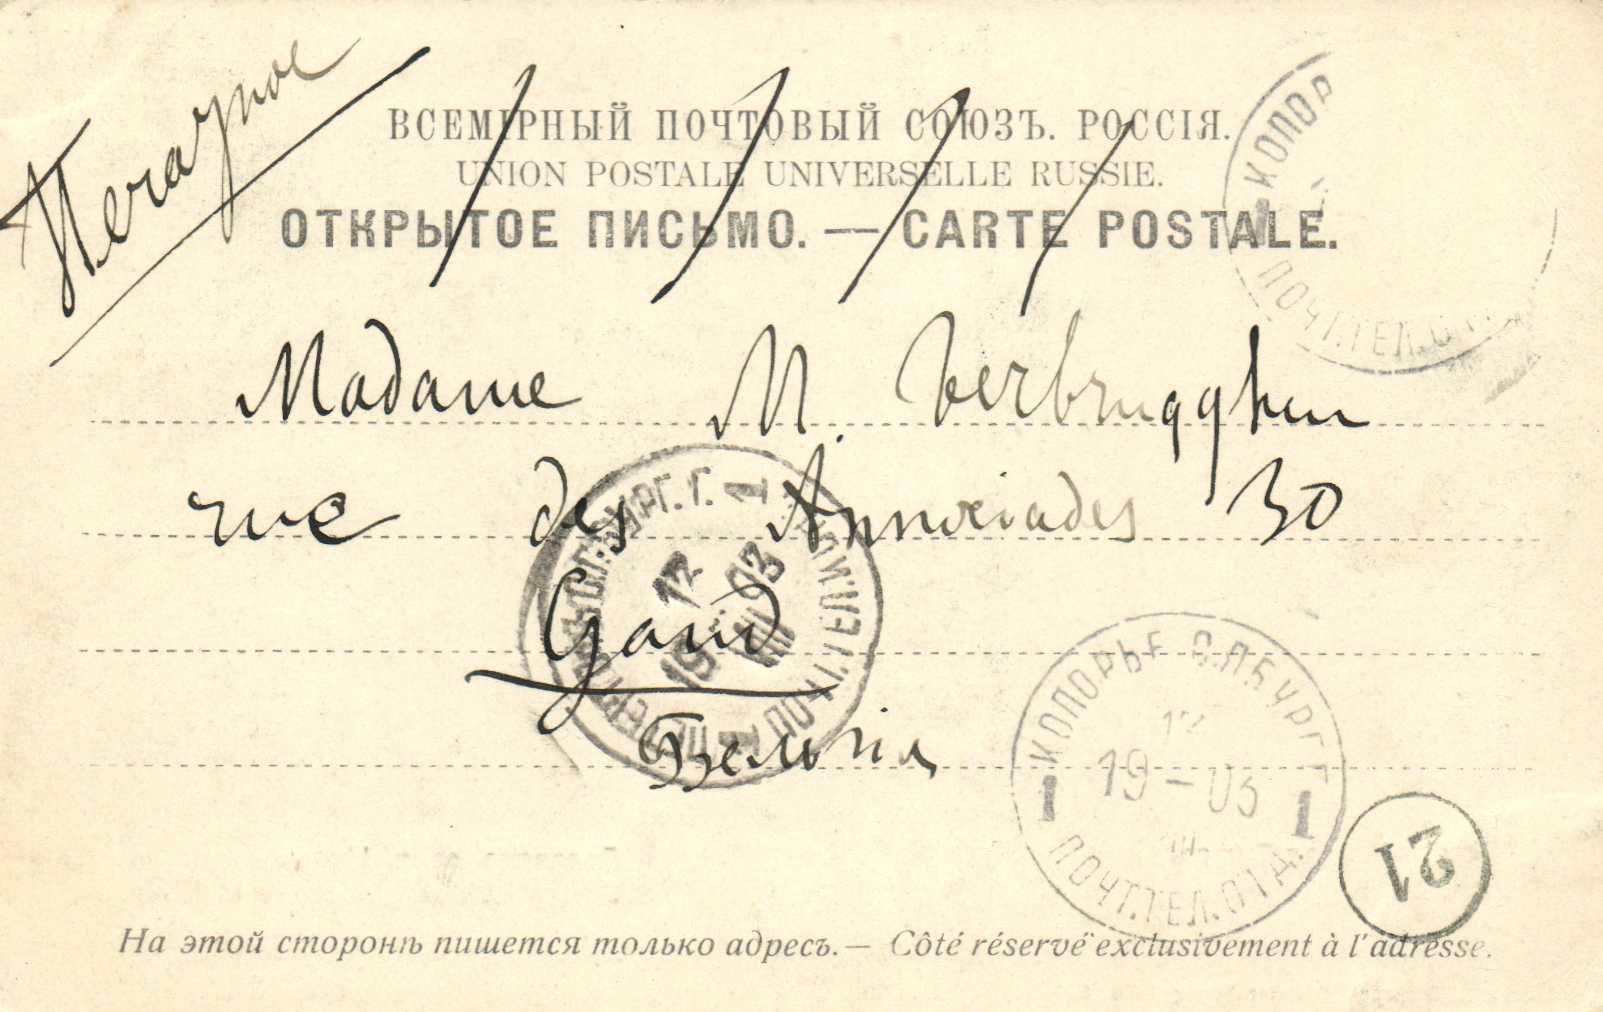 Печатное
ВСЕМІРНЫЙ ПОЧТОВЫЙ СОЮЗЪ. РОССІЯ.
UNION POSTALE UNIVERSELLE RUSSIE.
ОТКРЫТОЕ ПИСЬМО. — CARTE POSTALE.
КОПОР
ПОЧТ.ТЕЛ.ОТ
Madame M. Verbrugghen
rue des Annonciades 30
Gand
Бельгія
БУРГ. Г. 1
17
19 03
VIII
ПОЧТ.ТЕЛ
КОПОРЬЕ С.П.БУРГ Г
19-03
1 1
ПОЧТ.ТЕЛ.ОТД.
21
На этой сторонѣ пишется только адресъ.— Côté réservé exclusivement à l'adresse.